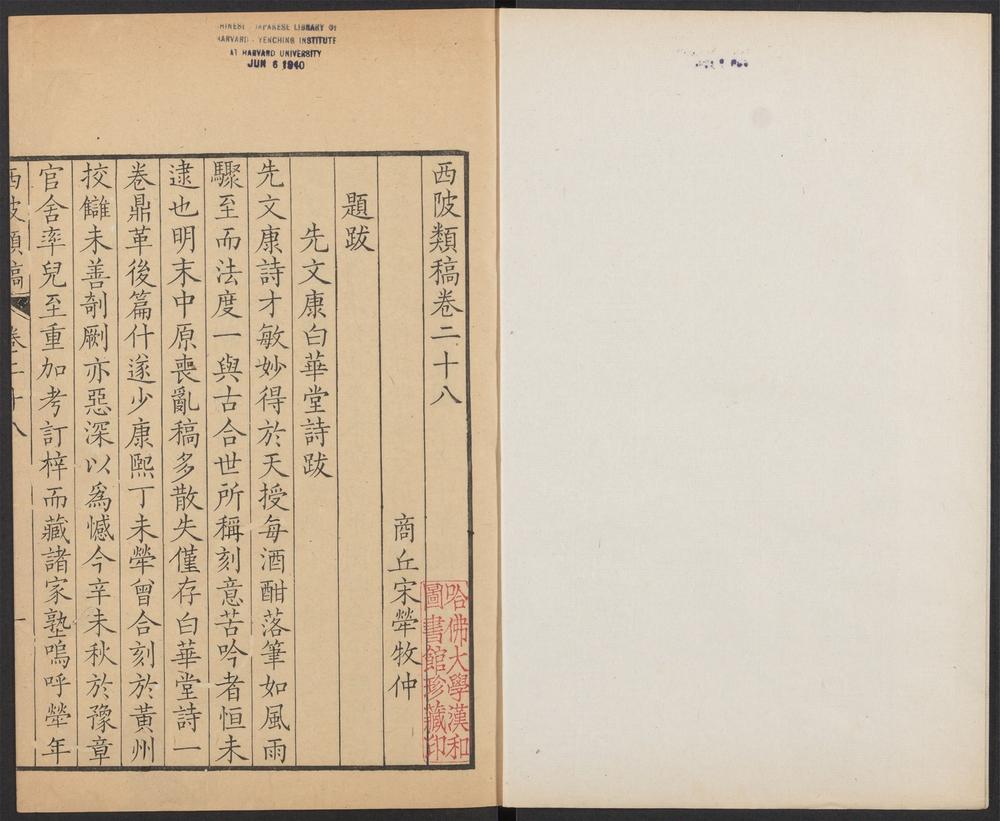 CHINESE - JAPANESE LIBRARY OF
HARVARD - YENCHING INSTITUTE
AT HARVARD UNIVERSITY
JUN 6 1940
西陂類稿卷二十八
商丘宋犖牧仲
題跋
先文康白華堂詩跋
先文康詩才敏妙得於天授每酒酣落筆如風雨
驟至而法度一與古合世所稱刻意苦吟者恒未
逮也明末中原喪亂稿多散失僅存白華堂詩一
卷鼎革後篇什遂少康熙丁未犖曾合刻於黃州
挍讎未善剞劂亦惡深以爲憾今辛未秋於豫章
官舍率兒至重加考訂梓而藏諸家塾嗚呼犖年
西陂類稿
卷二十八
一
哈佛大學漢和
圖書館珍藏印